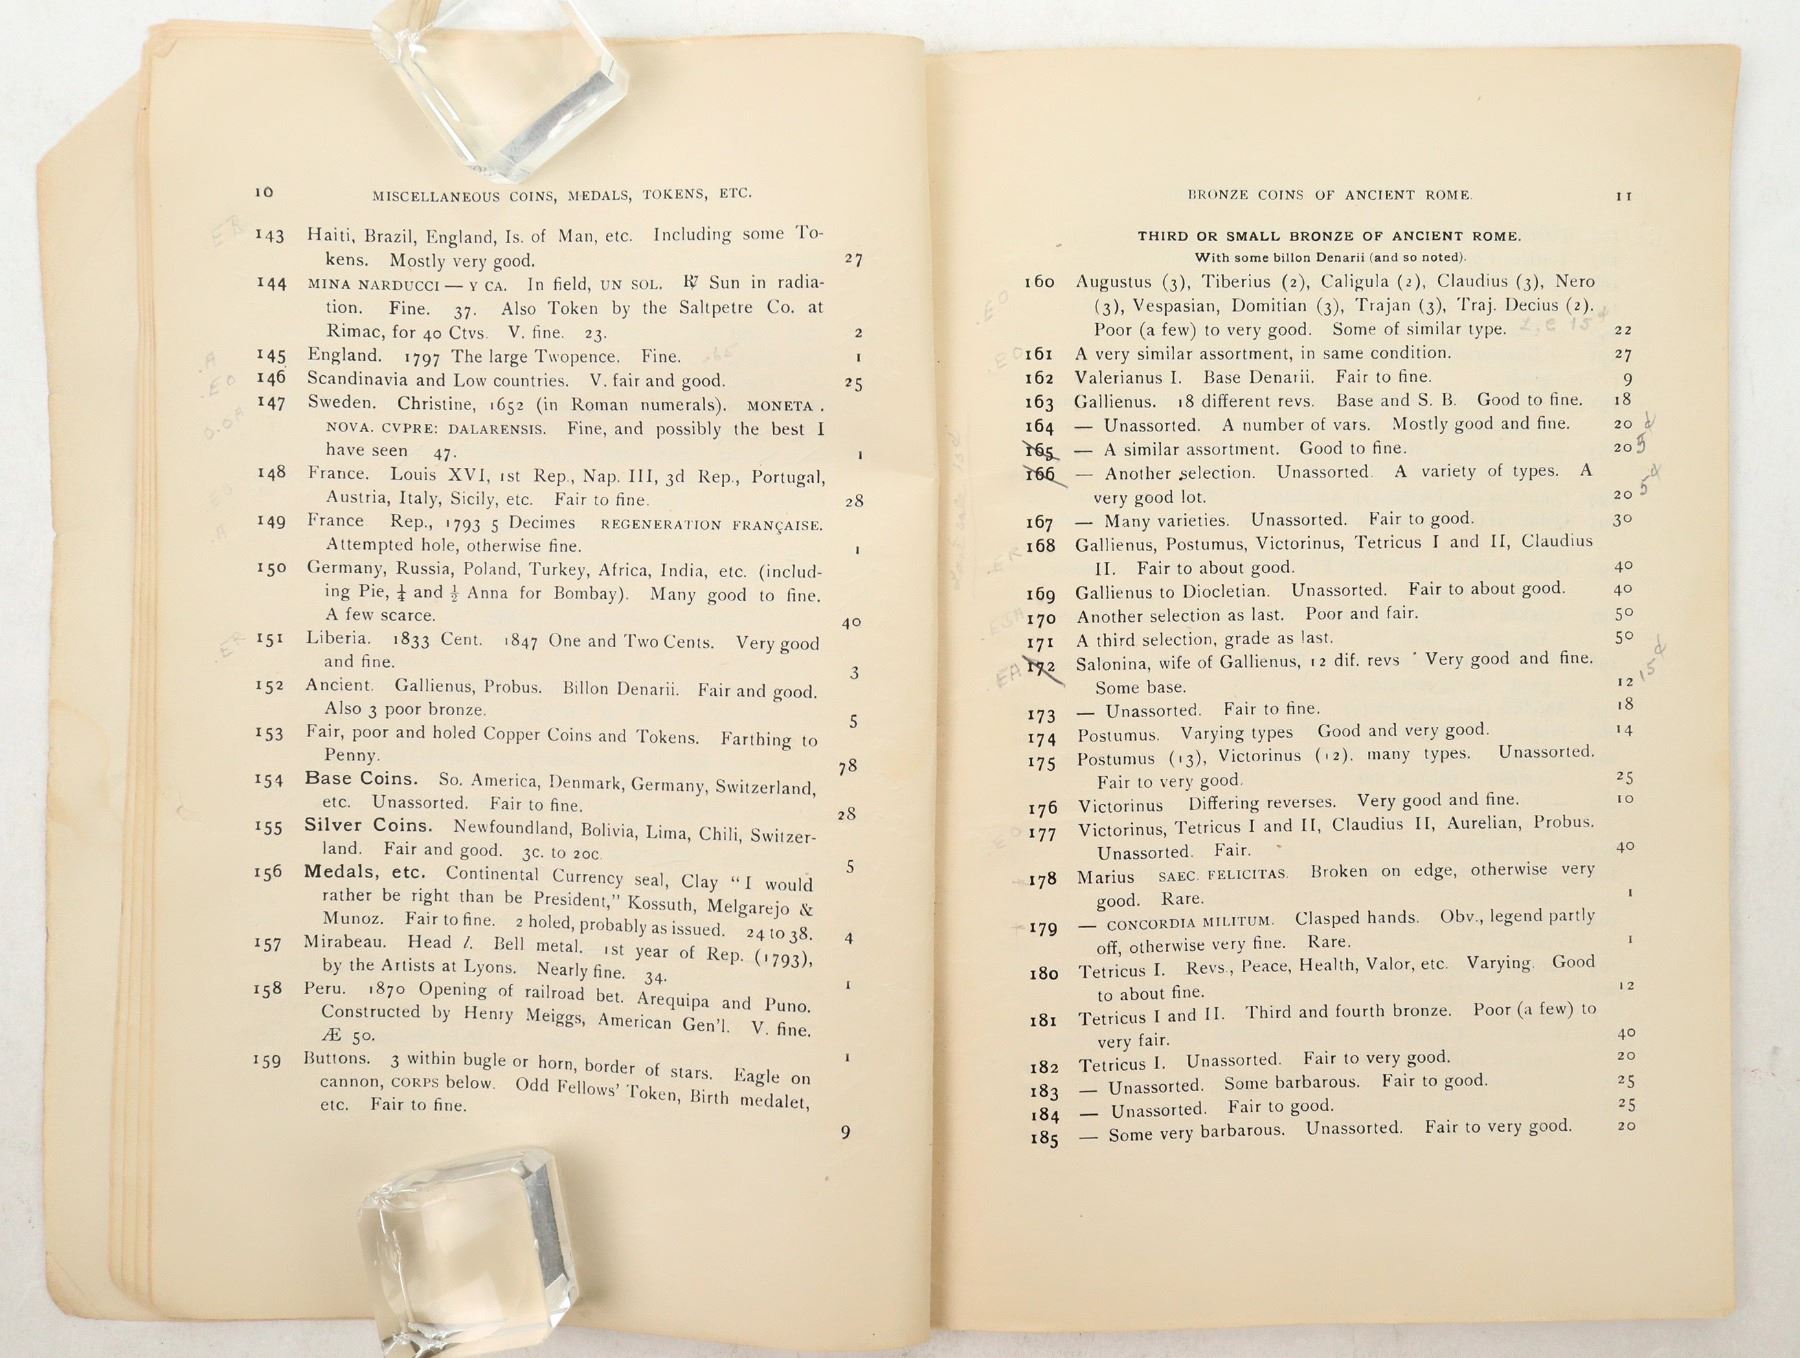 10
MISCELLANEOUS COINS, MEDALS, TOKENS, ETC.
143 Haiti, Brazil, England, Is. of Man, etc. Including some To-
kens. Mostly very good. 27
144 MINA NARDUCCI — Y CA. In field, UN SOL. Sun in radia-
tion. Fine. 37. Also Token by the Saltpetre Co. at
Rimac, for 40 Ctvs. V. fine. 23. 2
145 England. 1797 The large Twopence. Fine. 1
146 Scandinavia and Low countries. V. fair and good. 25
147 Sweden. Christine, 1652 (in Roman numerals). MONETA .
NOVA. CVPRE: DALARENSIS. Fine, and possibly the best I
have seen 47. 1
148 France. Louis XVI, 1st Rep., Nap. III, 3d Rep., Portugal,
Austria, Italy, Sicily, etc. Fair to fine. 28
149 France Rep., 1793 5 Decimes REGENERATION FRANÇAISE.
Attempted hole, otherwise fine. 1
150 Germany, Russia, Poland, Turkey, Africa, India, etc. (includ-
ing Pie, ¼ and ½ Anna for Bombay). Many good to fine.
A few scarce. 40
151 Liberia. 1833 Cent. 1847 One and Two Cents. Very good
and fine. 3
152 Ancient. Gallienus, Probus. Billon Denarii. Fair and good.
Also 3 poor bronze. 5
153 Fair, poor and holed Copper Coins and Tokens. Farthing to
Penny. 78
154 Base Coins. So. America, Denmark, Germany, Switzerland,
etc. Unassorted. Fair to fine. 28
155 Silver Coins. Newfoundland, Bolivia, Lima, Chili, Switzer-
land. Fair and good. 3c. to 20c. 5
156 Medals, etc. Continental Currency seal, Clay "I would
rather be right than be President," Kossuth, Melgarejo &
Munoz. Fair to fine. 2 holed, probably as issued. 24 to 38. 4
157 Mirabeau. Head l. Bell metal. 1st year of Rep. (1793),
by the Artists at Lyons. Nearly fine. 34. 1
158 Peru. 1870 Opening of railroad bet. Arequipa and Puno.
Constructed by Henry Meiggs, American Gen'l. V. fine.
Æ 50. 1
159 Buttons. 3 within bugle or horn, border of stars. Eagle on
cannon, CORPS below. Odd Fellows' Token, Birth medalet,
etc. Fair to fine. 9
BRONZE COINS OF ANCIENT ROME. 11
THIRD OR SMALL BRONZE OF ANCIENT ROME.
With some billon Denarii (and so noted).
160 Augustus (3), Tiberius (2), Caligula (2), Claudius (3), Nero
(3), Vespasian, Domitian (3), Trajan (3), Traj. Decius (2).
Poor (a few) to very good. Some of similar type. 22
161 A very similar assortment, in same condition. 27
162 Valerianus I. Base Denarii. Fair to fine. 9
163 Gallienus. 18 different revs. Base and S. B. Good to fine. 18
164 — Unassorted. A number of vars. Mostly good and fine. 20
165 — A similar assortment. Good to fine. 20 5
166 — Another selection. Unassorted. A variety of types. A
very good lot. 20 5
167 — Many varieties. Unassorted. Fair to good. 30
168 Gallienus, Postumus, Victorinus, Tetricus I and II, Claudius
II. Fair to about good. 40
169 Gallienus to Diocletian. Unassorted. Fair to about good. 40
170 Another selection as last. Poor and fair. 50
171 A third selection, grade as last. 50
172 Salonina, wife of Gallienus, 12 dif. revs Very good and fine.
Some base. 12 15¢
173 — Unassorted. Fair to fine. 18
174 Postumus. Varying types Good and very good. 14
175 Postumus (13), Victorinus (12). many types. Unassorted.
Fair to very good. 25
176 Victorinus Differing reverses. Very good and fine. 10
177 Victorinus, Tetricus I and II, Claudius II, Aurelian, Probus.
Unassorted. Fair. 40
178 Marius SAEC. FELICITAS. Broken on edge, otherwise very
good. Rare. 1
179 — CONCORDIA MILITUM. Clasped hands. Obv., legend partly
off, otherwise very fine. Rare. 1
180 Tetricus I. Revs., Peace, Health, Valor, etc. Varying. Good
to about fine. 12
181 Tetricus I and II. Third and fourth bronze. Poor (a few) to
very fair. 40
182 Tetricus I. Unassorted. Fair to very good. 20
183 — Unassorted. Some barbarous. Fair to good. 25
184 — Unassorted. Fair to good. 25
185 — Some very barbarous. Unassorted. Fair to very good. 20